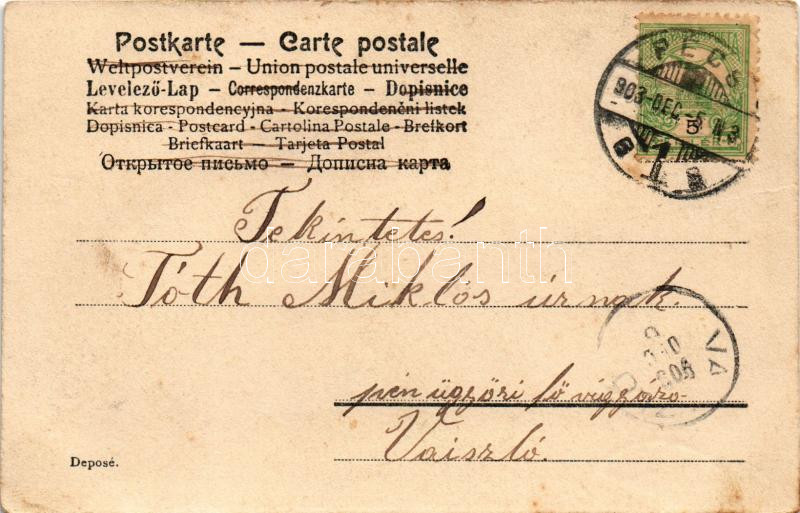 Postkarte — Carte postale
Weltpostverein – Union postale universelle
Levelező-Lap – Correspondenzkarte – Dopisnice
Karta korespondencyjna – Korespondenčni listek
Dopisnica - Postcard - Cartolina Postale - Brefkort
Briefkaart — Tarjeta Postal
Открытое письмо — Дописна карта
PÉCS
903 DEC. 5
Tekintetes!
Tóth Miklós úrnak.
VA
pénügyőri fő
Vaiszló.
Deposé.
darabanth